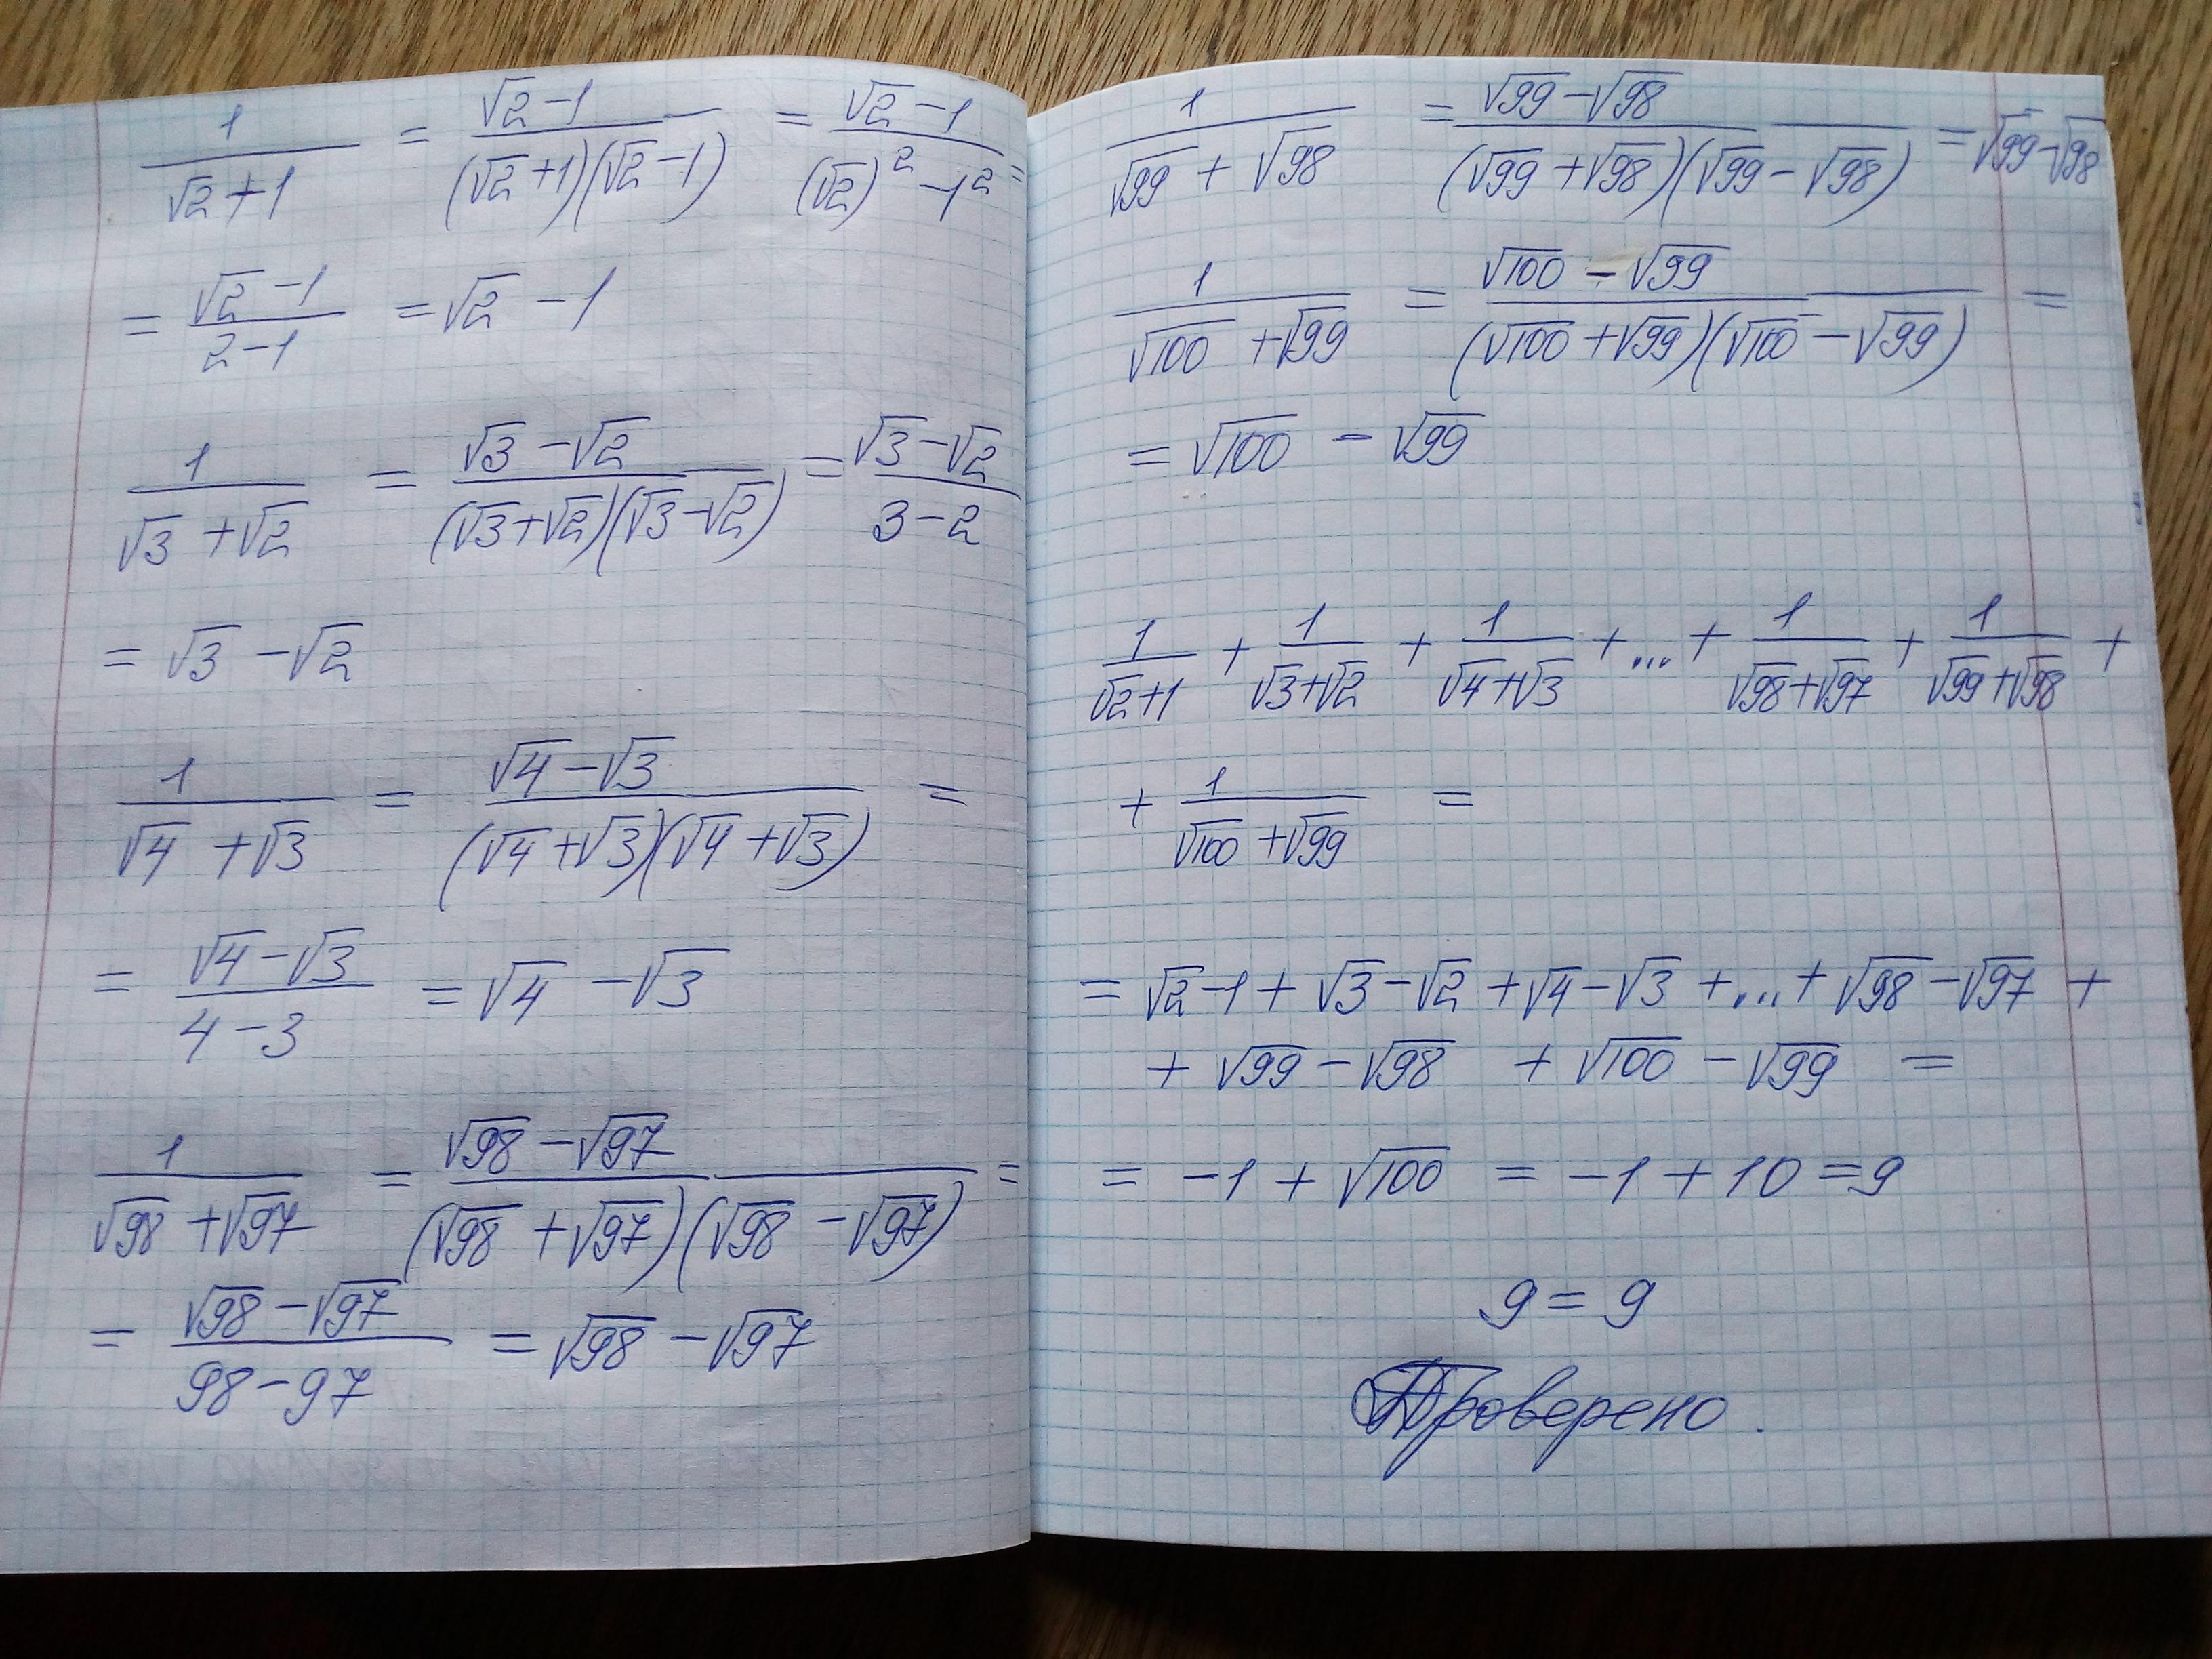 1/(√2+1) = (√2-1)/((√2+1)(√2-1)) = (√2-1)/((√2)²-1²) =
= (√2-1)/(2-1) = √2-1
1/(√3+√2) = (√3-√2)/((√3+√2)(√3-√2)) = (√3-√2)/(3-2)
= √3-√2
1/(√4+√3) = (√4-√3)/((√4+√3)(√4+√3)) =
= (√4-√3)/(4-3) = √4-√3
1/(√98+√97) = (√98-√97)/((√98+√97)(√98-√97)) =
= (√98-√97)/(98-97) = √98-√97
1/(√99+√98) = (√99-√98)/((√99+√98)(√99-√98)) = √99-√98
1/(√100+√99) = (√100-√99)/((√100+√99)(√100-√99)) =
= √100-√99
1/(√2+1) + 1/(√3+√2) + 1/(√4+√3) +...+ 1/(√98+√97) + 1/(√99+√98) +
+ 1/(√100+√99) =
= √2-1+√3-√2+√4-√3+...+√98-√97+
+√99-√98+√100-√99=
= -1+√100 = -1+10=9
9=9
Проверено.